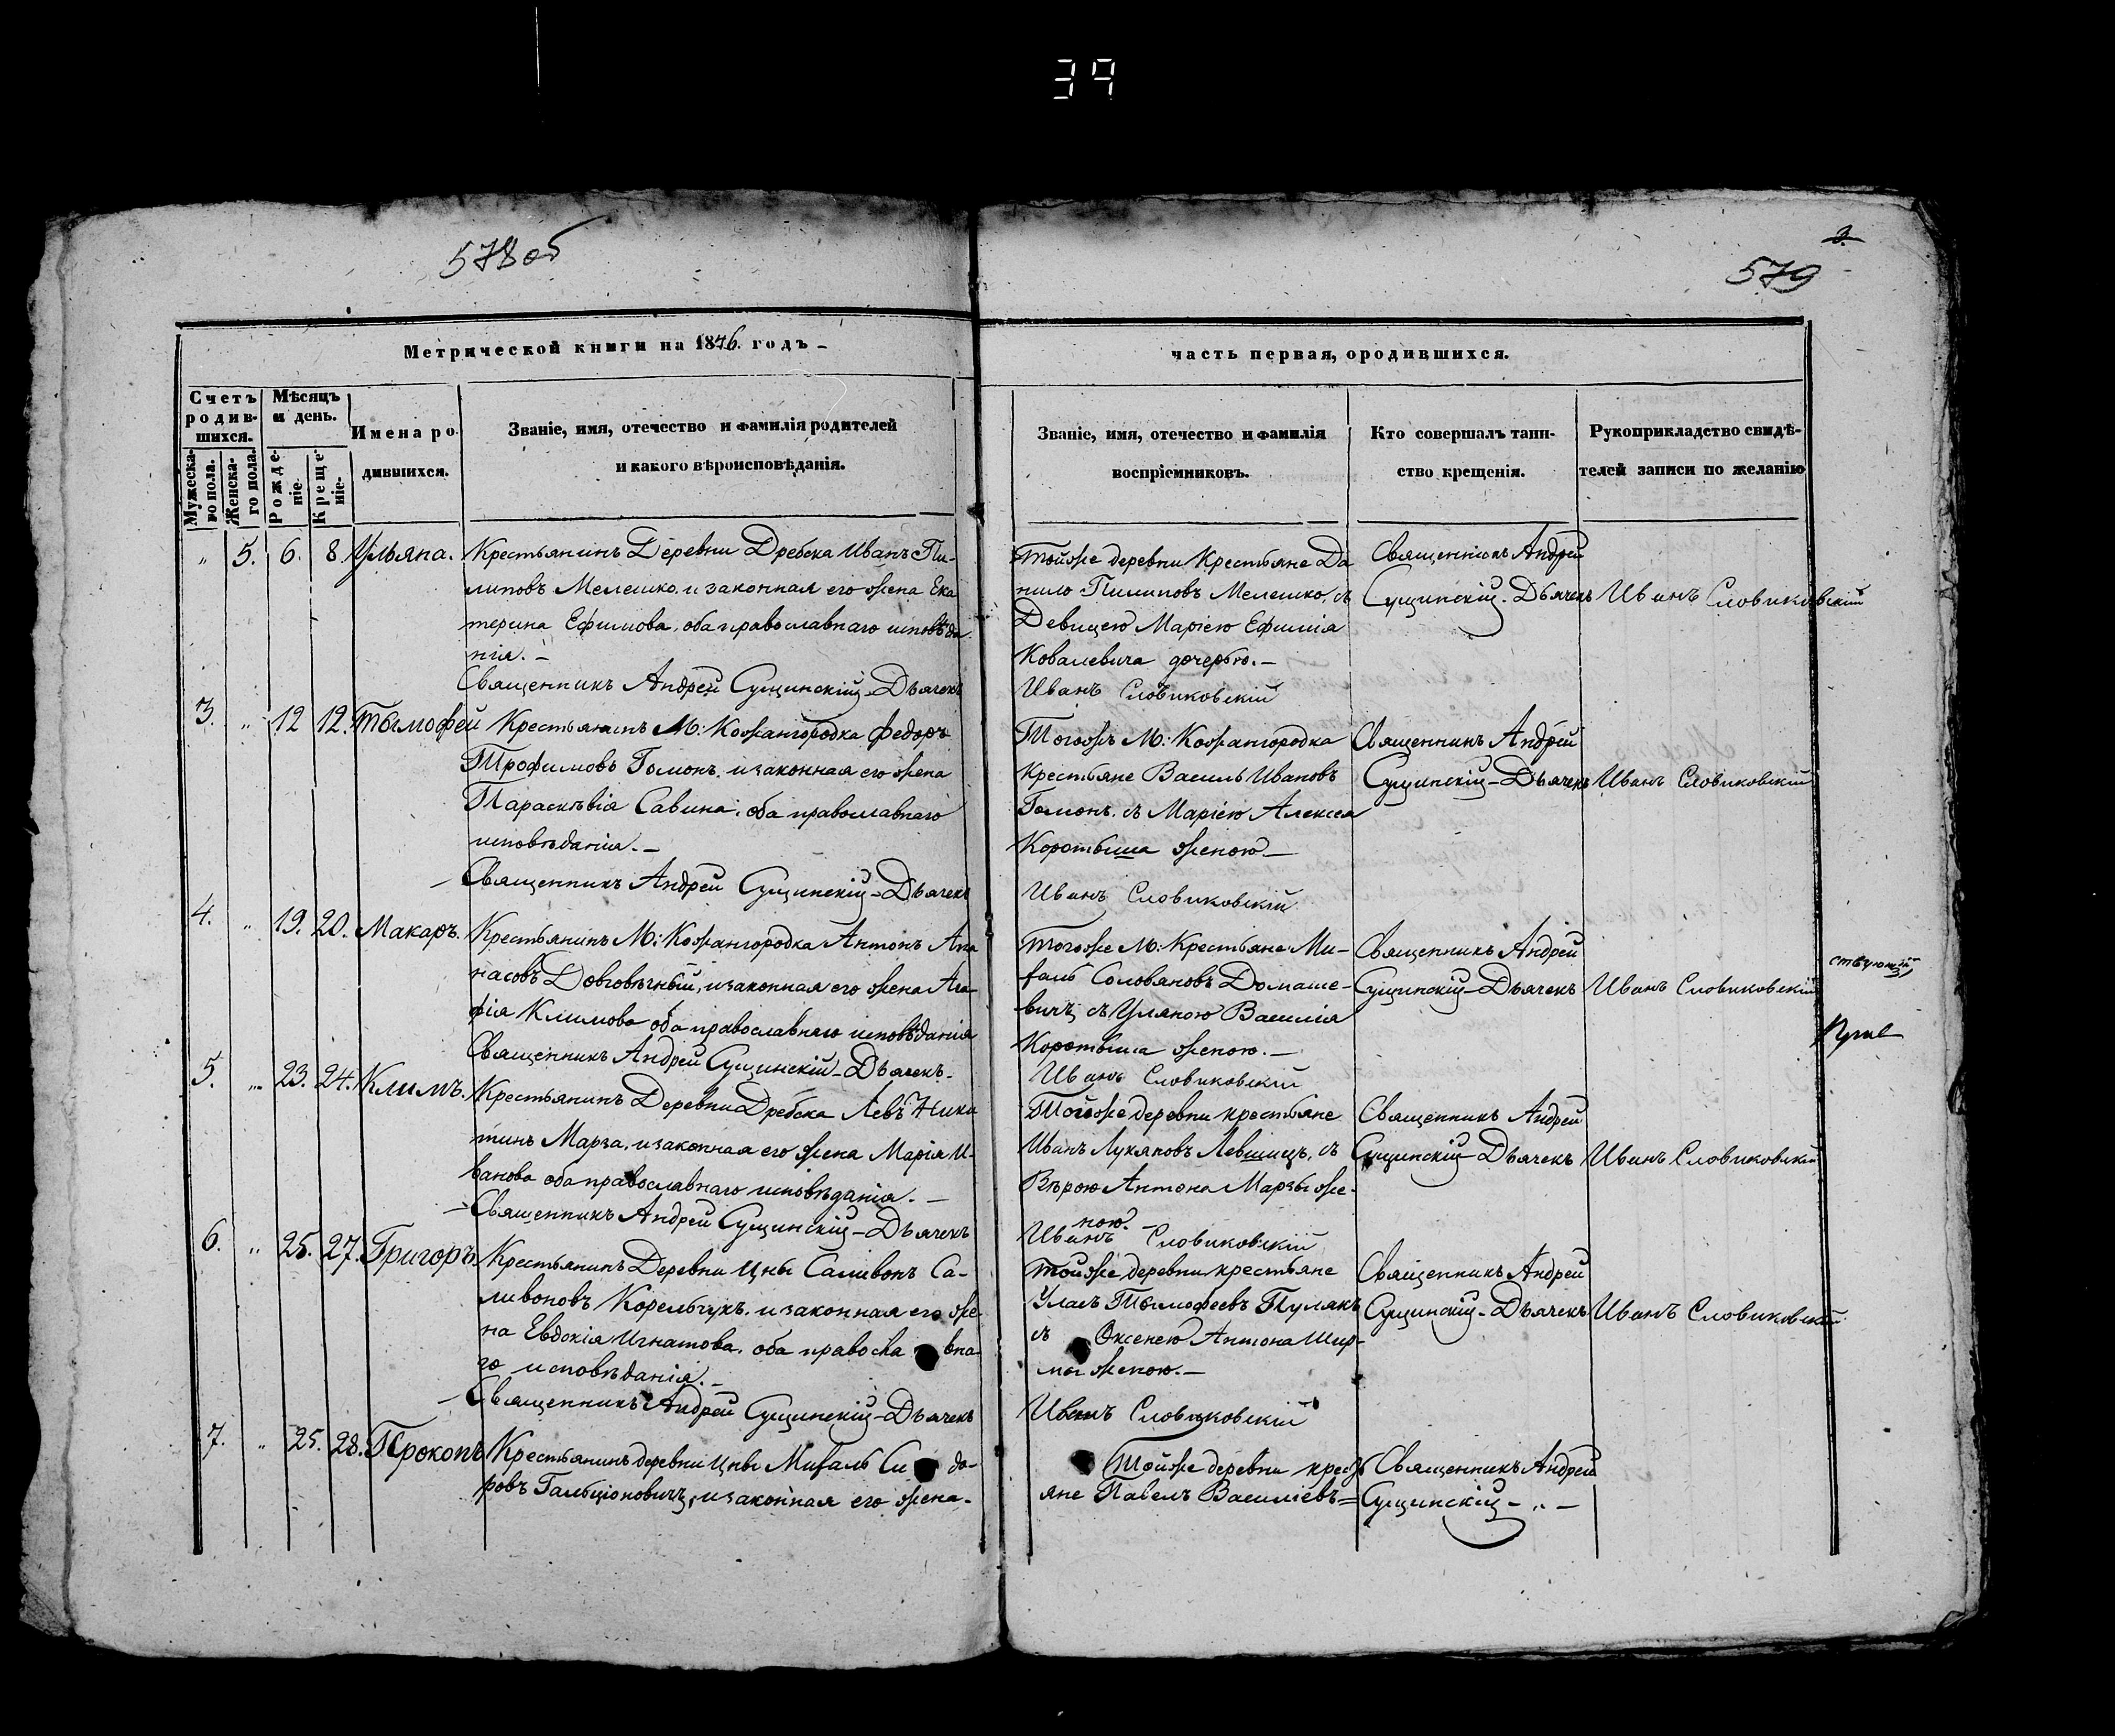 39
578 об
579
3.
Метрической книги на 1846. годъ –
часть первая, ородившихся.
Счетъ родив-шихся.
Мужеска-го пола.
Женска-го пола.
Мѣсяцъ и день.
Рожде-ніе.
Креще-ніе.
Имена ро-
дившихся.
Званіе, имя, отечество и фамилія родителей
и какого вѣроисповѣданія.
Званіе, имя, отечество и фамилія
воспріемниковъ.
Кто совершалъ таин-
ство крещенія.
Рукоприкладство свидѣ-
телей записи по желанію
„ 5. 6. 8 Ульяна.
Крестьянинъ Деревни Дребска Иванъ Пи-
липовъ Мелешко, и законная его жена Ека
терина Ефимова, оба православнаго исповѣда
нія. –
Священникъ Андрей Сущинскій – Дьячекъ
Тойже деревни Крестьяне Да
нило Пилиповъ Мелешко, съ
Девицею Маріею Ефимія
Ковалевича дочерью. –
Иванъ Словиковскій
Священникъ Андрей
Сущинскій – Дьячекъ Иванъ Словиковскій
3. „ 12 12. Тымофей
Крестьянинъ М: Кожангородка Федоръ
Трофимовъ Гомонъ, и законная его жена
Параскѣвія Савина, оба православнаго
исповѣданія. –
Священникъ Андрей Сущинскій – Дьячекъ
Тогожъ М: Кожангородка
Крестьяне Василь Ивановъ
Гомонъ, съ Маріею Алексея
Коротыша женою –
Иванъ Словиковскій
Священникъ Андрей
Сущинскій – Дьячекъ Иванъ Словиковскій
4. „ 19. 20. Макаръ.
Крестьянинъ М: Кожангородка Антонъ Апа
насовъ Довговѣчный, и законная его жена Ага-
фія Климова оба православнаго исповѣданія
Священникъ Андрей Сущинскій – Дьячекъ.
Тогоже М: Крестьяне Ми-
халь Соловяновъ Домаше-
вичъ, съ Уляною Василія
Коротыша женою. –
Иванъ Словиковскій
Священникъ Андрей
Сущинскій – Дьячекъ Иванъ Словиковскій
5. „ 23. 24. Климъ.
Крестьянинъ Деревни Дребска Левъ Ники
тинъ Марза, и законная его жена Марія И-
ванова оба православнаго исповѣданія. –
Священникъ Андрей Сущинскій – Дьячекъ
Тойже деревни крестьяне
Иванъ Лукяновъ Левшицъ, съ
Вѣрою Антона Марзы же-
ною. –
Иванъ Словиковскій
Священникъ Андрей
Сущинскій – Дьячекъ Иванъ Словиковскій
6. „ 25. 27. Григоръ
Крестьянинъ Деревни Цны Саливонъ Са-
ливоновъ Корельчукъ, и законная его же
на Евдокія Игнатова, оба правосла вна-
го исповѣданія. –
Священникъ Андрей Сущинскій – Дьячекъ
Тойже деревни крестьяне
Уласъ Тымофеевъ Пулякъ
съ Оксенею Антона Шир-
мы женою. –
Иванъ Словиковскій
Священникъ Андрей
Сущинскій – Дьячекъ Иванъ Словиковскій
7. „ 25. 28. Прокопъ
Крестьянинъ деревни Цны Михаль Си до-
ровъ Гальціоновичъ, и законная его жена.
Тойже деревни крест
яне Павелъ Василіевъ =
Священникъ Андрей
Сущинскій – „ –